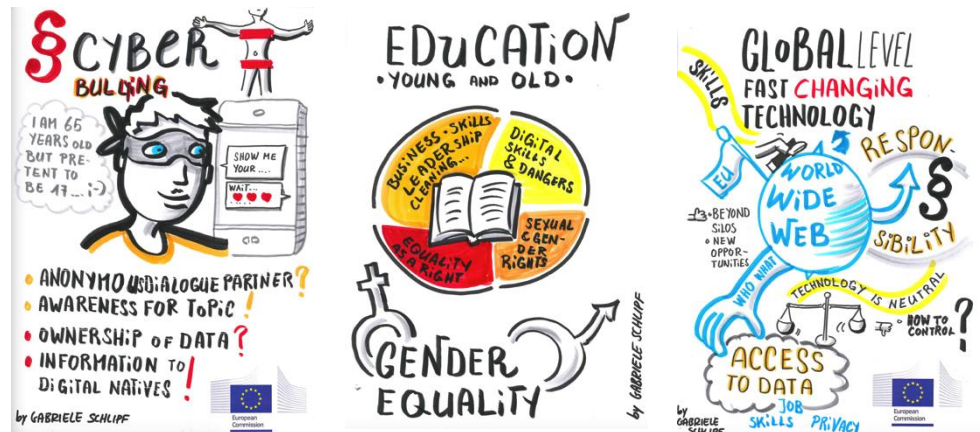 § CYBER
BULLYING
I AM 65
YEARS OLD
BUT PRE-
TENT TO
BE 17... ;-)
SHOW ME
YOUR ....
WAIT...
• ANONYMOUS DIALOGUE PARTNER?
• AWARENESS FOR TOPIC!
• OWNERSHIP OF DATA?
• INFORMATION TO
DIGITAL NATIVES!
by GABRIELE SCHLIPF
European
Commission
EDUCATION
• YOUNG AND OLD •
BUSINESS-SKILLS
LEADERSHIP
CLEANING...
DIGITAL
SKILLS
& DANGERS
EQUALITY
AS A RIGHT
SEXUAL
& GEN-
DER
RIGHTS
GENDER
EQUALITY
by GABRIELE SCHLIPF
GLOBAL LEVEL
FAST CHANGING
TECHNOLOGY
SKILLS
EU
WORLD
WIDE
WEB
RESPON-
§
SIBILITY
• BEYOND
SILOS
• NEW
OPPOR-
TUNITIES
WHO WHAT
TECHNOLOGY IS NEUTRAL
• HOW TO
CONTROL?
ACCESS
TO DATA
JOB
SKILLS PRIVACY
by
GABRIELE
SCHLIPF
European
Commission